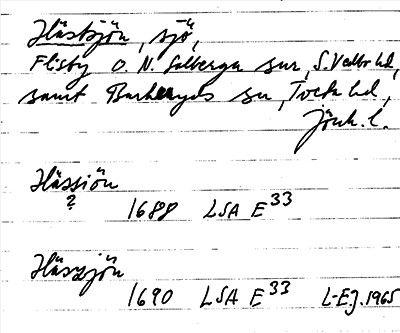 Hästsjön, sjö,
Flisby o. N. Solberga snr, S. Vedbo hd,
samt Barkeryds sn, Tveta hd,
Jönk. l.
Hässiön
?
1688 LSA E33
Hässjön
1690 LSA E33 L-EJ. 1965